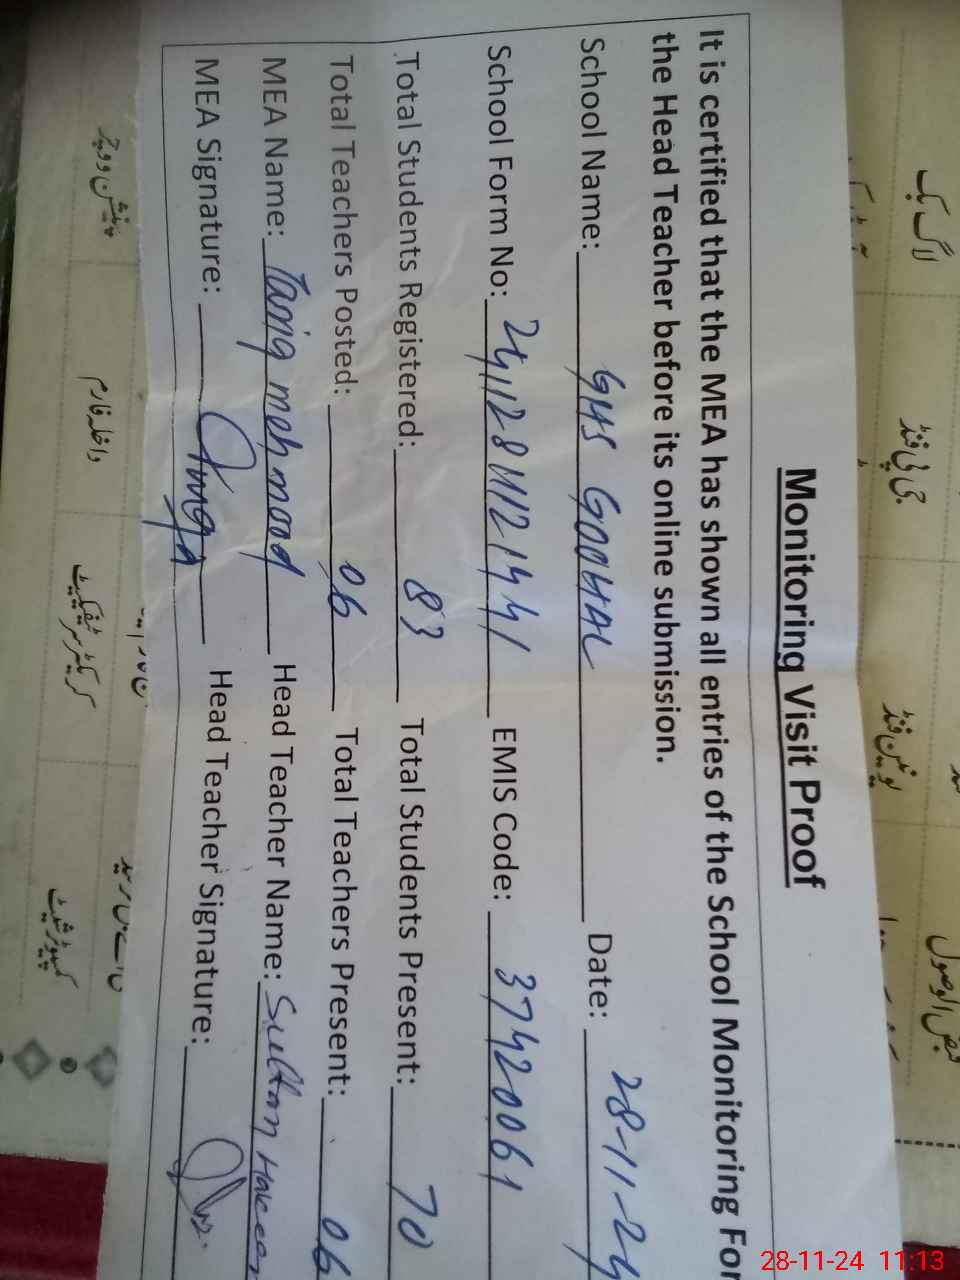 Monitoring Visit Proof
It is certified that the MEA has shown all entries of the School Monitoring For
the Head Teacher before its online submission.
School Name: GHS GOOHAL Date: 28-11-24
School Form No: EMIS Code: 37420061
Total Students Registered: 83 Total Students Present: 70
Total Teachers Posted: 06 Total Teachers Present: 06
MEA Name: Tariq mehmood Head Teacher Name: Sultan Hakeem
MEA Signature: Head Teacher Signature:
لاگ بک
جی پی فنڈ
یونین فنڈ
قبض الوصول
داخلہ فارم
کریکٹر سرٹیفکیٹ
کمپیوٹر شیٹ
28-11-24 11:13